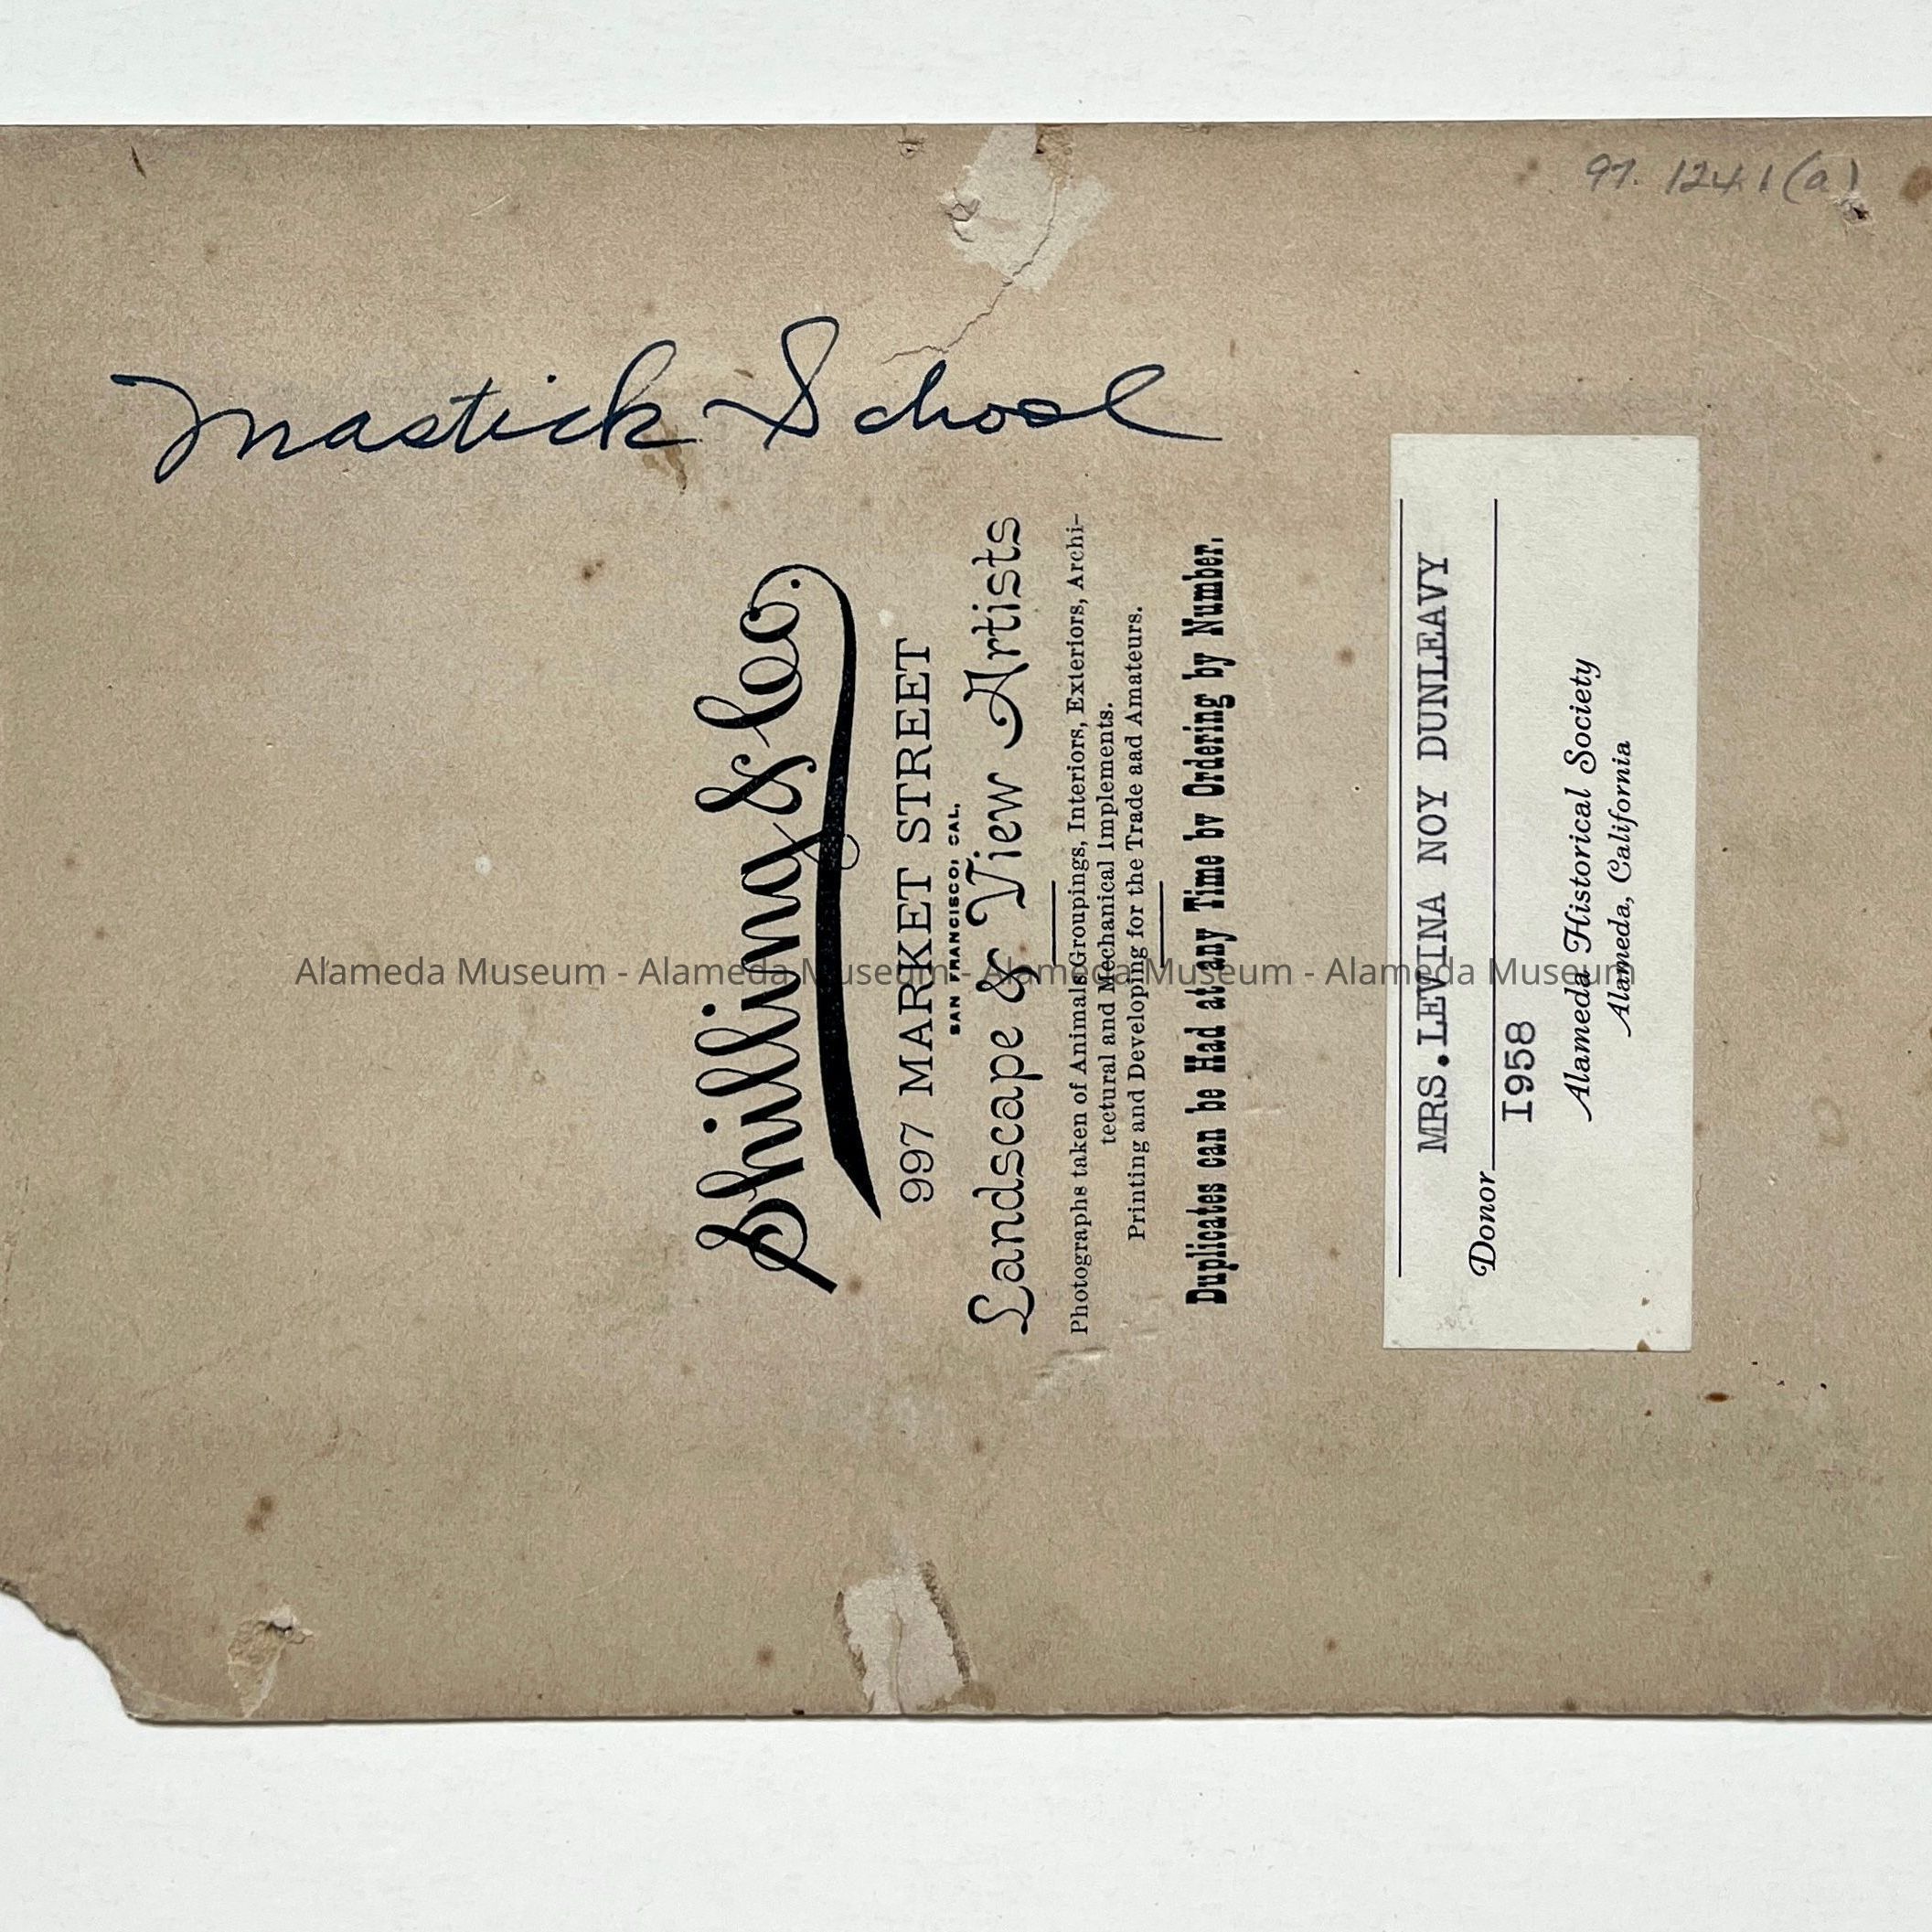 97.1241(a)
Mastick School
Shilling & Co.
997 MARKET STREET
SAN FRANCISCO, CAL.
Landscape & View Artists
Photographs taken of Animals Groupings, Interiors, Exteriors, Archi-
tectural and Mechanical Implements.
Printing and Developing for the Trade aad Amateurs.
Duplicates can be Had at any Time by Ordering by Number.
MRS.LEVINA NOY DUNLEAVY
Donor
I958
Alameda Historical Society
Alameda, California
Alameda Museum - Alameda Museum - Alameda Museum - Alameda Museum